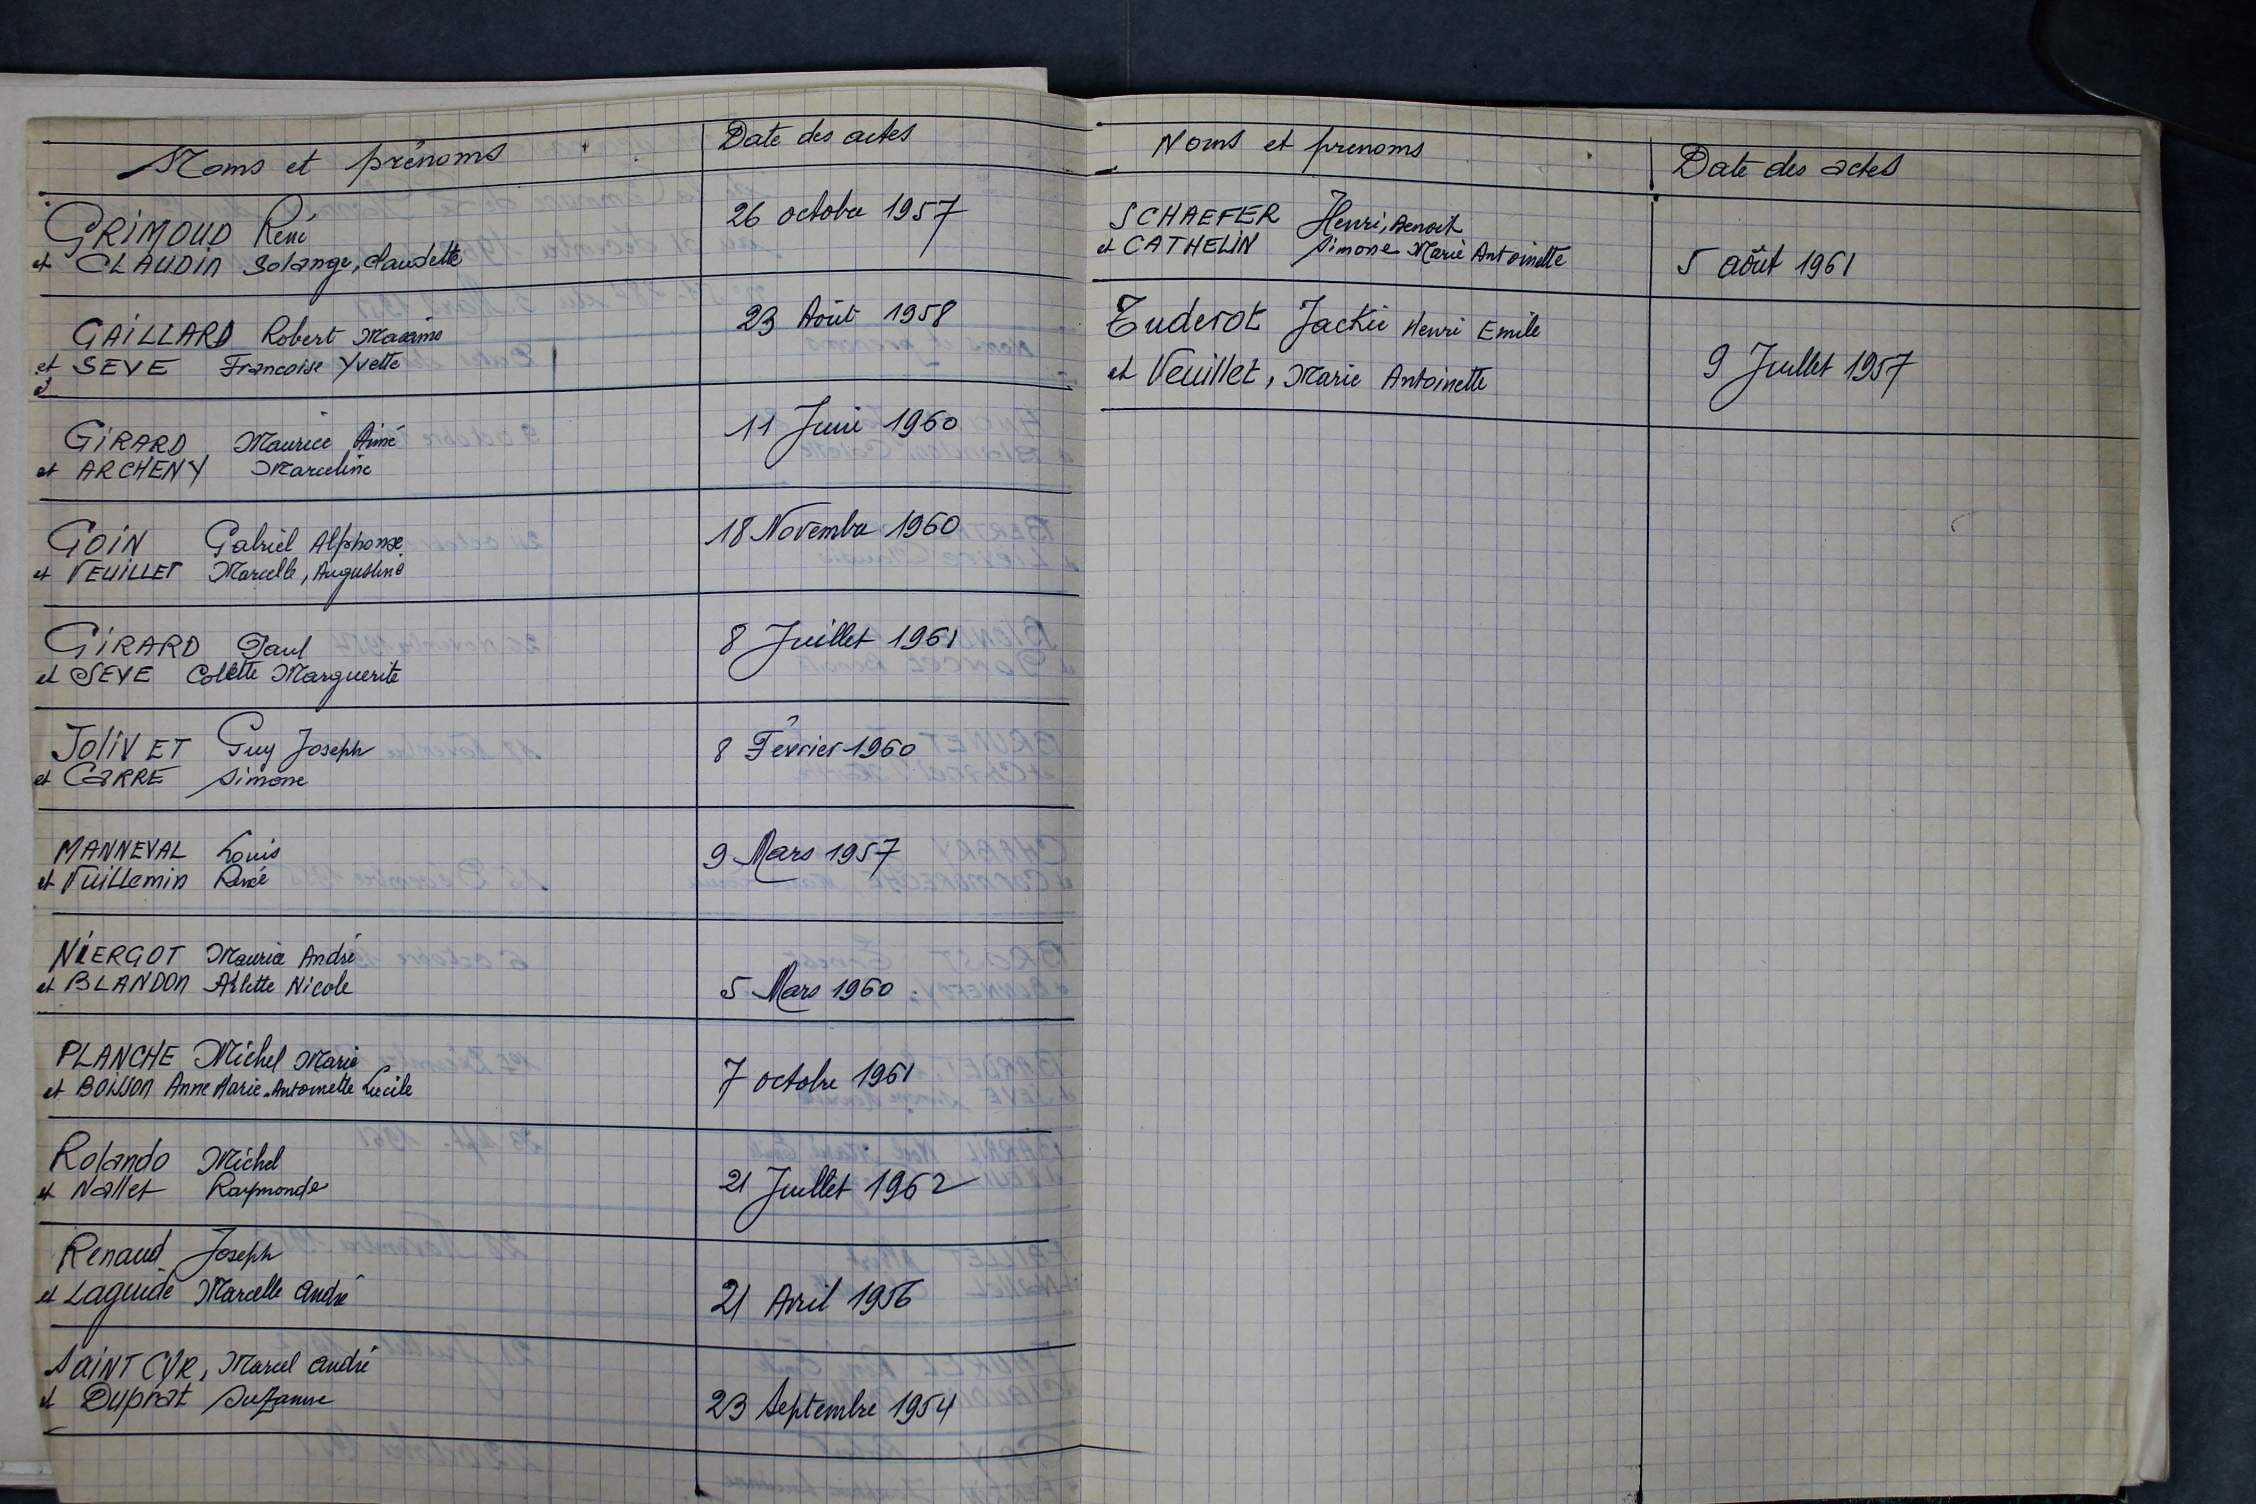 Noms et prénoms Date des actes
GRIMOUD René 26 octobre 1957
et CLAUDIN Solange, Claudette
GAILLARD Robert Maxime 23 Août 1958
et SEVE Francoise Yvette
et
GIRARD Maurice Aimé 11 Juin 1960
et ARCHENY Marceline
GOIN Gabriel Alphonse 18 Novembre 1960
et VEUILLET Marcelle, Augustine
GIRARD Paul 8 Juillet 1961
et SEVE Colette Marguerite
JOLIVET Guy Joseph 8 Février 1960
et CARRE Simone
MANNEVAL Louis 9 Mars 1957
et Vuillemin Renée
NIERGOT Maurice André
et BLANDON Arlette Nicole 5 Mars 1960
PLANCHE Michel Marie 7 octobre 1961
et BOISSON Anne Marie-Antoinette Lucile
Rolando Michel
et Nallet Raymonde 21 Juillet 1962
Renaud Joseph
et Laguide Marcelle André 21 Avril 1956
SAINT CYR, Marcel André
et Duprat Suzanne 23 Septembre 1954
Noms et prenoms Date des actes
SCHAEFER Henri, Benoit
et CATHELIN Simone Marie Antoinette 5 août 1961
Tuderot Jackie Henri Emile
et Veuillet, Marie Antoinette 9 Juillet 1957